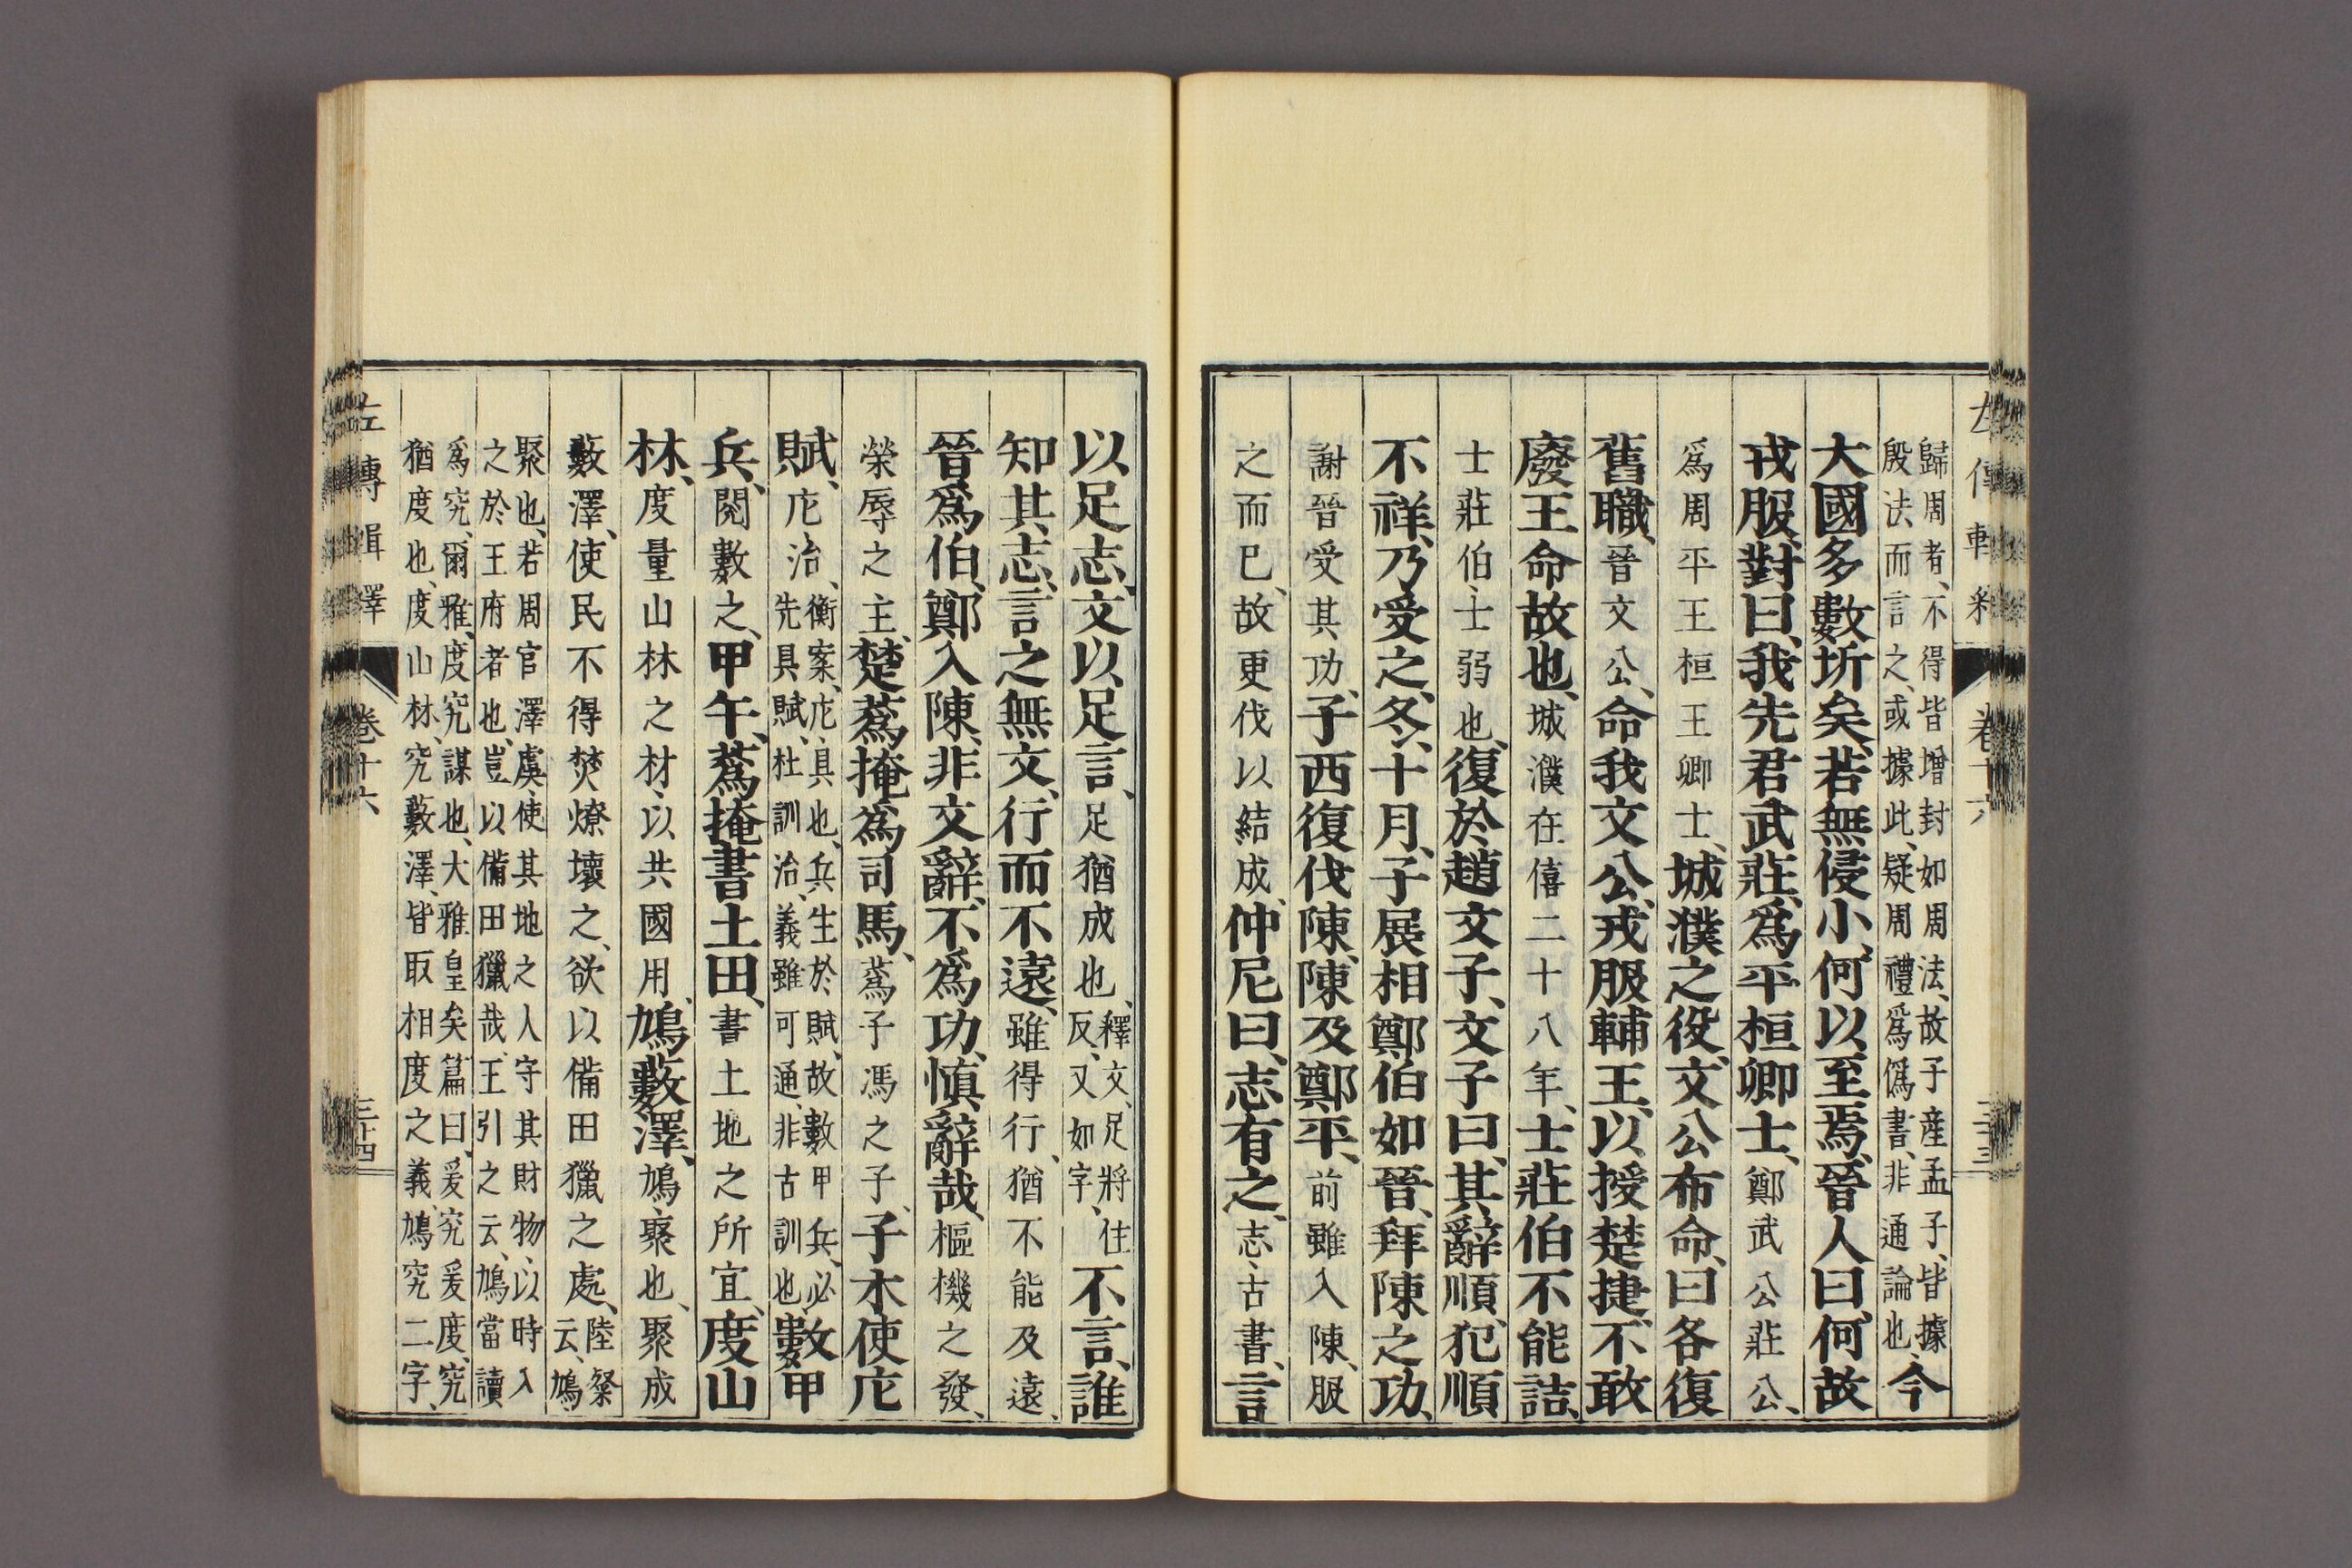 歸周者、不得皆增封如周法、故子産孟子、皆據
殷法而言之、或據此、疑周禮爲僞書、非通論也、今
大國多數圻矣、若無侵小、何以至焉、晉人曰、何故
戎服、對曰、我先君武莊、爲平桓卿士、鄭武公莊公、
爲周平王桓王卿士、城濮之役、文公布命、曰各復
舊職、晉文公、命我文公、戎服輔王、以授楚捷、不敢
廢王命故也、城濮在僖二十八年、士莊伯不能詰、
士莊伯、士弱也、復於趙文子、文子曰、其辭順、犯順
不祥、乃受之、冬、十月、子展相鄭伯如晉、拜陳之功、
謝晉受其功、子西復伐陳、陳及鄭平、前雖入陳、服
之而已、故更伐以結成、仲尼曰、志有之、志、古書、言
以足志、文以足言、足猶成也、釋文、足將住
反、又如字、不言、誰
知其志、言之無文、行而不遠、雖得行、猶不能及遠、
晉爲伯、鄭入陳、非文辭、不爲功、愼辭哉、樞機之發、
榮辱之主、楚蒍掩爲司馬、蒍子馮之子、子木使庀
賦、庀治、衡案、庀、具也、兵生於賦、故數甲兵、必
先具賦、杜訓治、義雖可通、非古訓也、數甲
兵、閱數之、甲午、蒍掩書土田、書土地之所宜、度山
林、度量山林之材、以共國用、鳩藪澤、鳩、聚也、聚成
藪澤、使民不得焚燎壞之、欲以備田獵之處、陸粲
云、鳩、
聚也、若周官澤虞、使其地之人守其財物、以時入
之於王府者也、豈以備田獵哉、王引之云、鳩當讀
爲究、爾雅、度究、謀也、大雅皇矣篇曰、爰究爰度、究
猶度也、度山林、究藪澤、皆取相度之義、鳩究二字、
左傳輯釋
卷十六
三十四